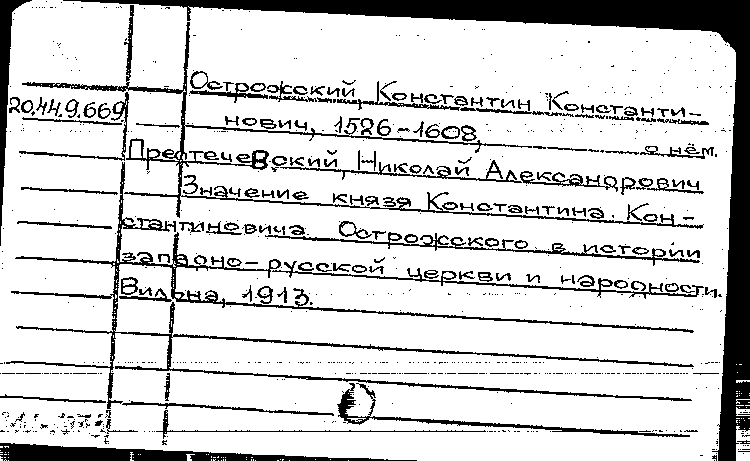 Острожский, Константин Константи-
20.44.9.669 нович, 1526-1608, о нём.
Предтечевский, Николай Александрович
Значение князя Константина Кон-
стантиновича Острожского в истории
западно-русской церкви и народности.
Вильна, 1913.